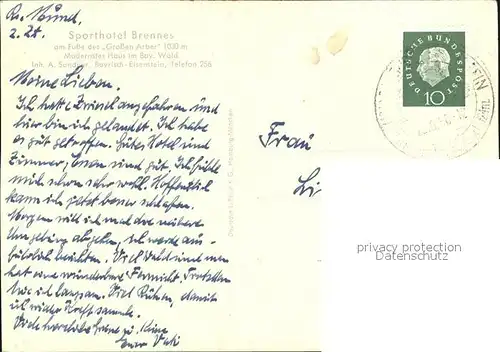 z. Zt.
Sporthotel Brennes
am Fuße des „Großen Arber" 1030 m
Modernstes Haus im Bay. Wald
Inh. A. Bayrisch-Eisenstein, Telefon 256
Meine Lieben.
Ich hatte Zwiesel angefahren und
hier bin ich gelandet. Ich habe
es gut getroffen. Gutes Hotel und
Zimmer, Essen sind gut. Ich fühle
mich schon sehr wohl. Hoffentlich
kann ich jetzt besser schlafen.
Morgen will ich mal die nähere
Umgebung abgehen, ich werde aus-
führlich berichten. Viel Wald und man
hat eine wunderbare Fernsicht. Trotzdem
bin ich langsam. Viel Ruhen, damit
ich wieder Kraft sammle.
Viele herzliche Grüße u. Küsse
Euer Vati
Frau
Li
DEUTSCHE BUNDESPOST
10
privacy protection
Datenschutz